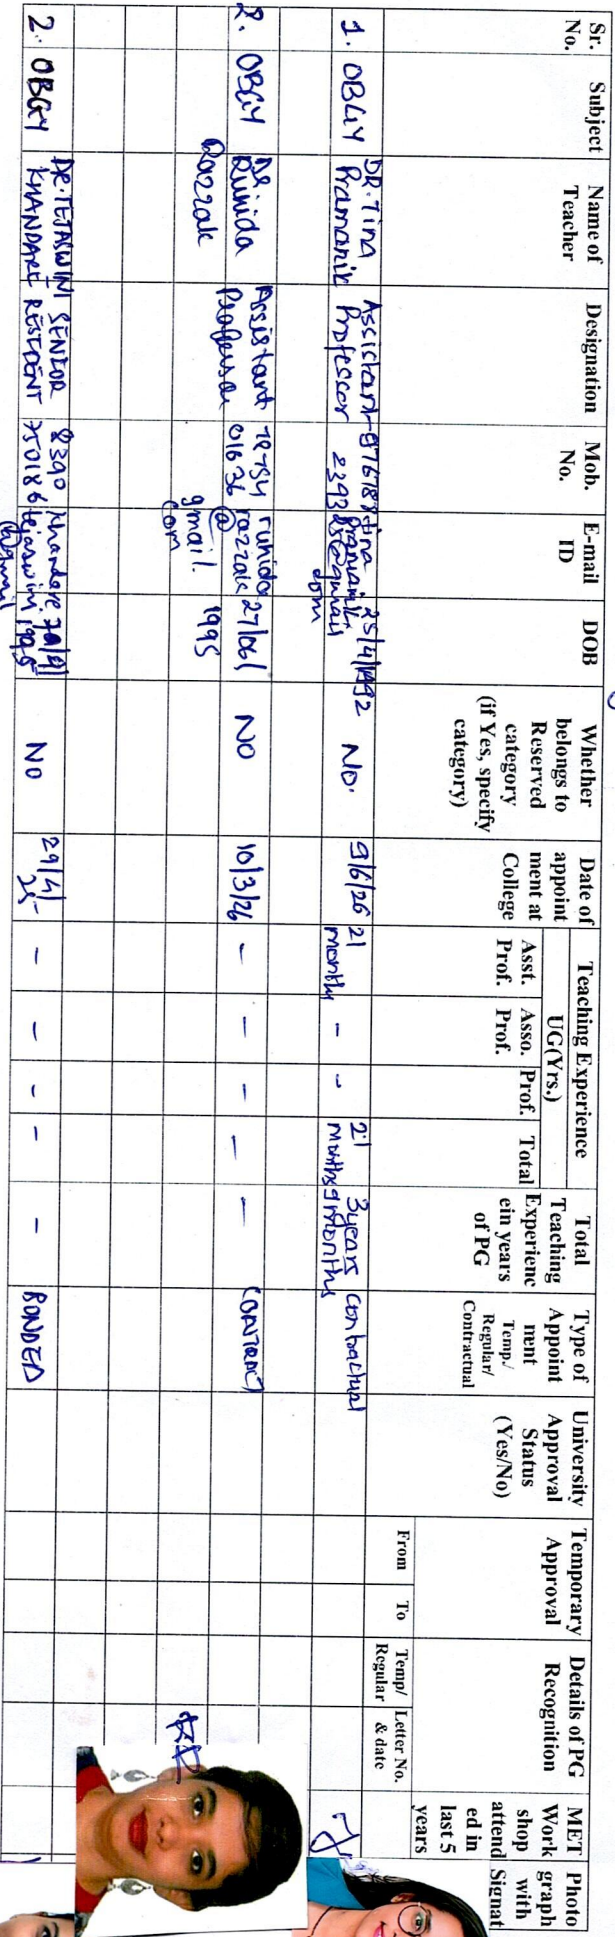 Sr.
No.
Subject
Name of
Teacher
Designation
Mob.
No.
E-mail
ID
DOB
Whether
belongs to
Reserved
category
(if Yes, specify
category)
Date of
appoint
ment at
College
Teaching Experience
UG(Yrs.)
Asst.
Prof.
Asso.
Prof.
Prof.
Total
Total
Teaching
Experienc
ein years
of PG
Type of
Appoint
ment
Temp./
Regular/
Contractual
University
Approval
Status
(Yes/No)
Temporary
Approval
From
To
Details of PG
Recognition
Temp/
Regular
Letter No.
& date
MET
Work
shop
attend
ed in
last 5
years
Photo
graph
with
Signat
1.
OBGY
DR. Tina
Pramanik
Assistant
Professor
2393
25/4/1992
NO.
9/6/26
21
months
-
-
21
months
3years
9months
Contractual
2.
OBGY
DR
Ruhida
Razzak
Assistant
Professor
01636
ruhida
razzak
@
gmail.
com
27/06/
1995
NO
10/3/26
-
-
-
-
-
CONTRACT
2.
OBGY
DR. TEJASWINI
KHANDARE
SENIOR
RESIDENT
8390
750186
khandare
tejaswini
@gmail
1995
NO
29/4/
25
-
-
-
-
-
BONDED